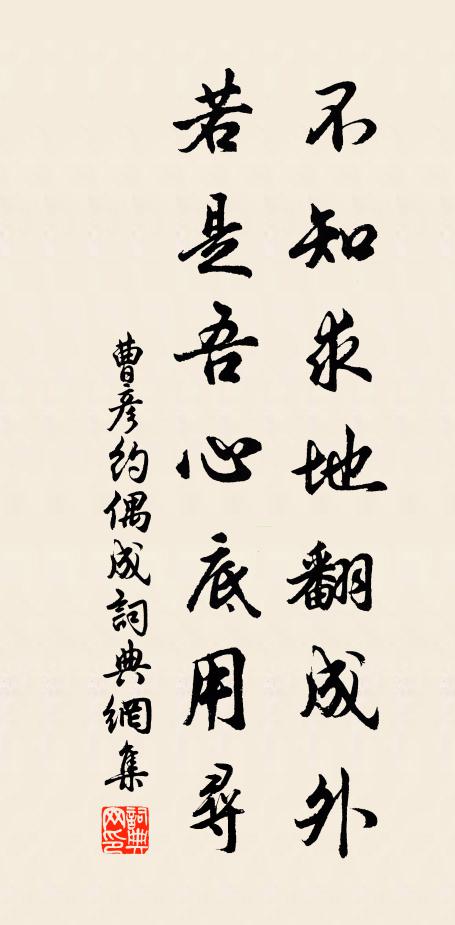 不知求地翻成外
若是吾心底用尋
曹彥約偶成詞典網集
詞典網印